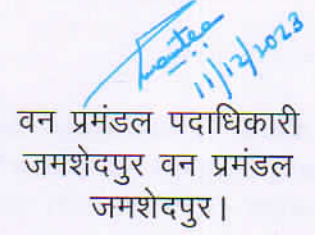 11/12/2023
वन प्रमंडल पदाधिकारी
जमशेदपुर वन प्रमंडल
जमशेदपुर।